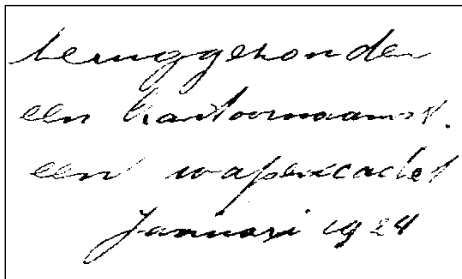 teruggezonden
een kantoornaamst.
een wapencachet
Januari 1924